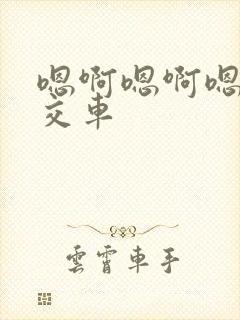 嗯啊嗯啊嗯
交车
雲霄車手